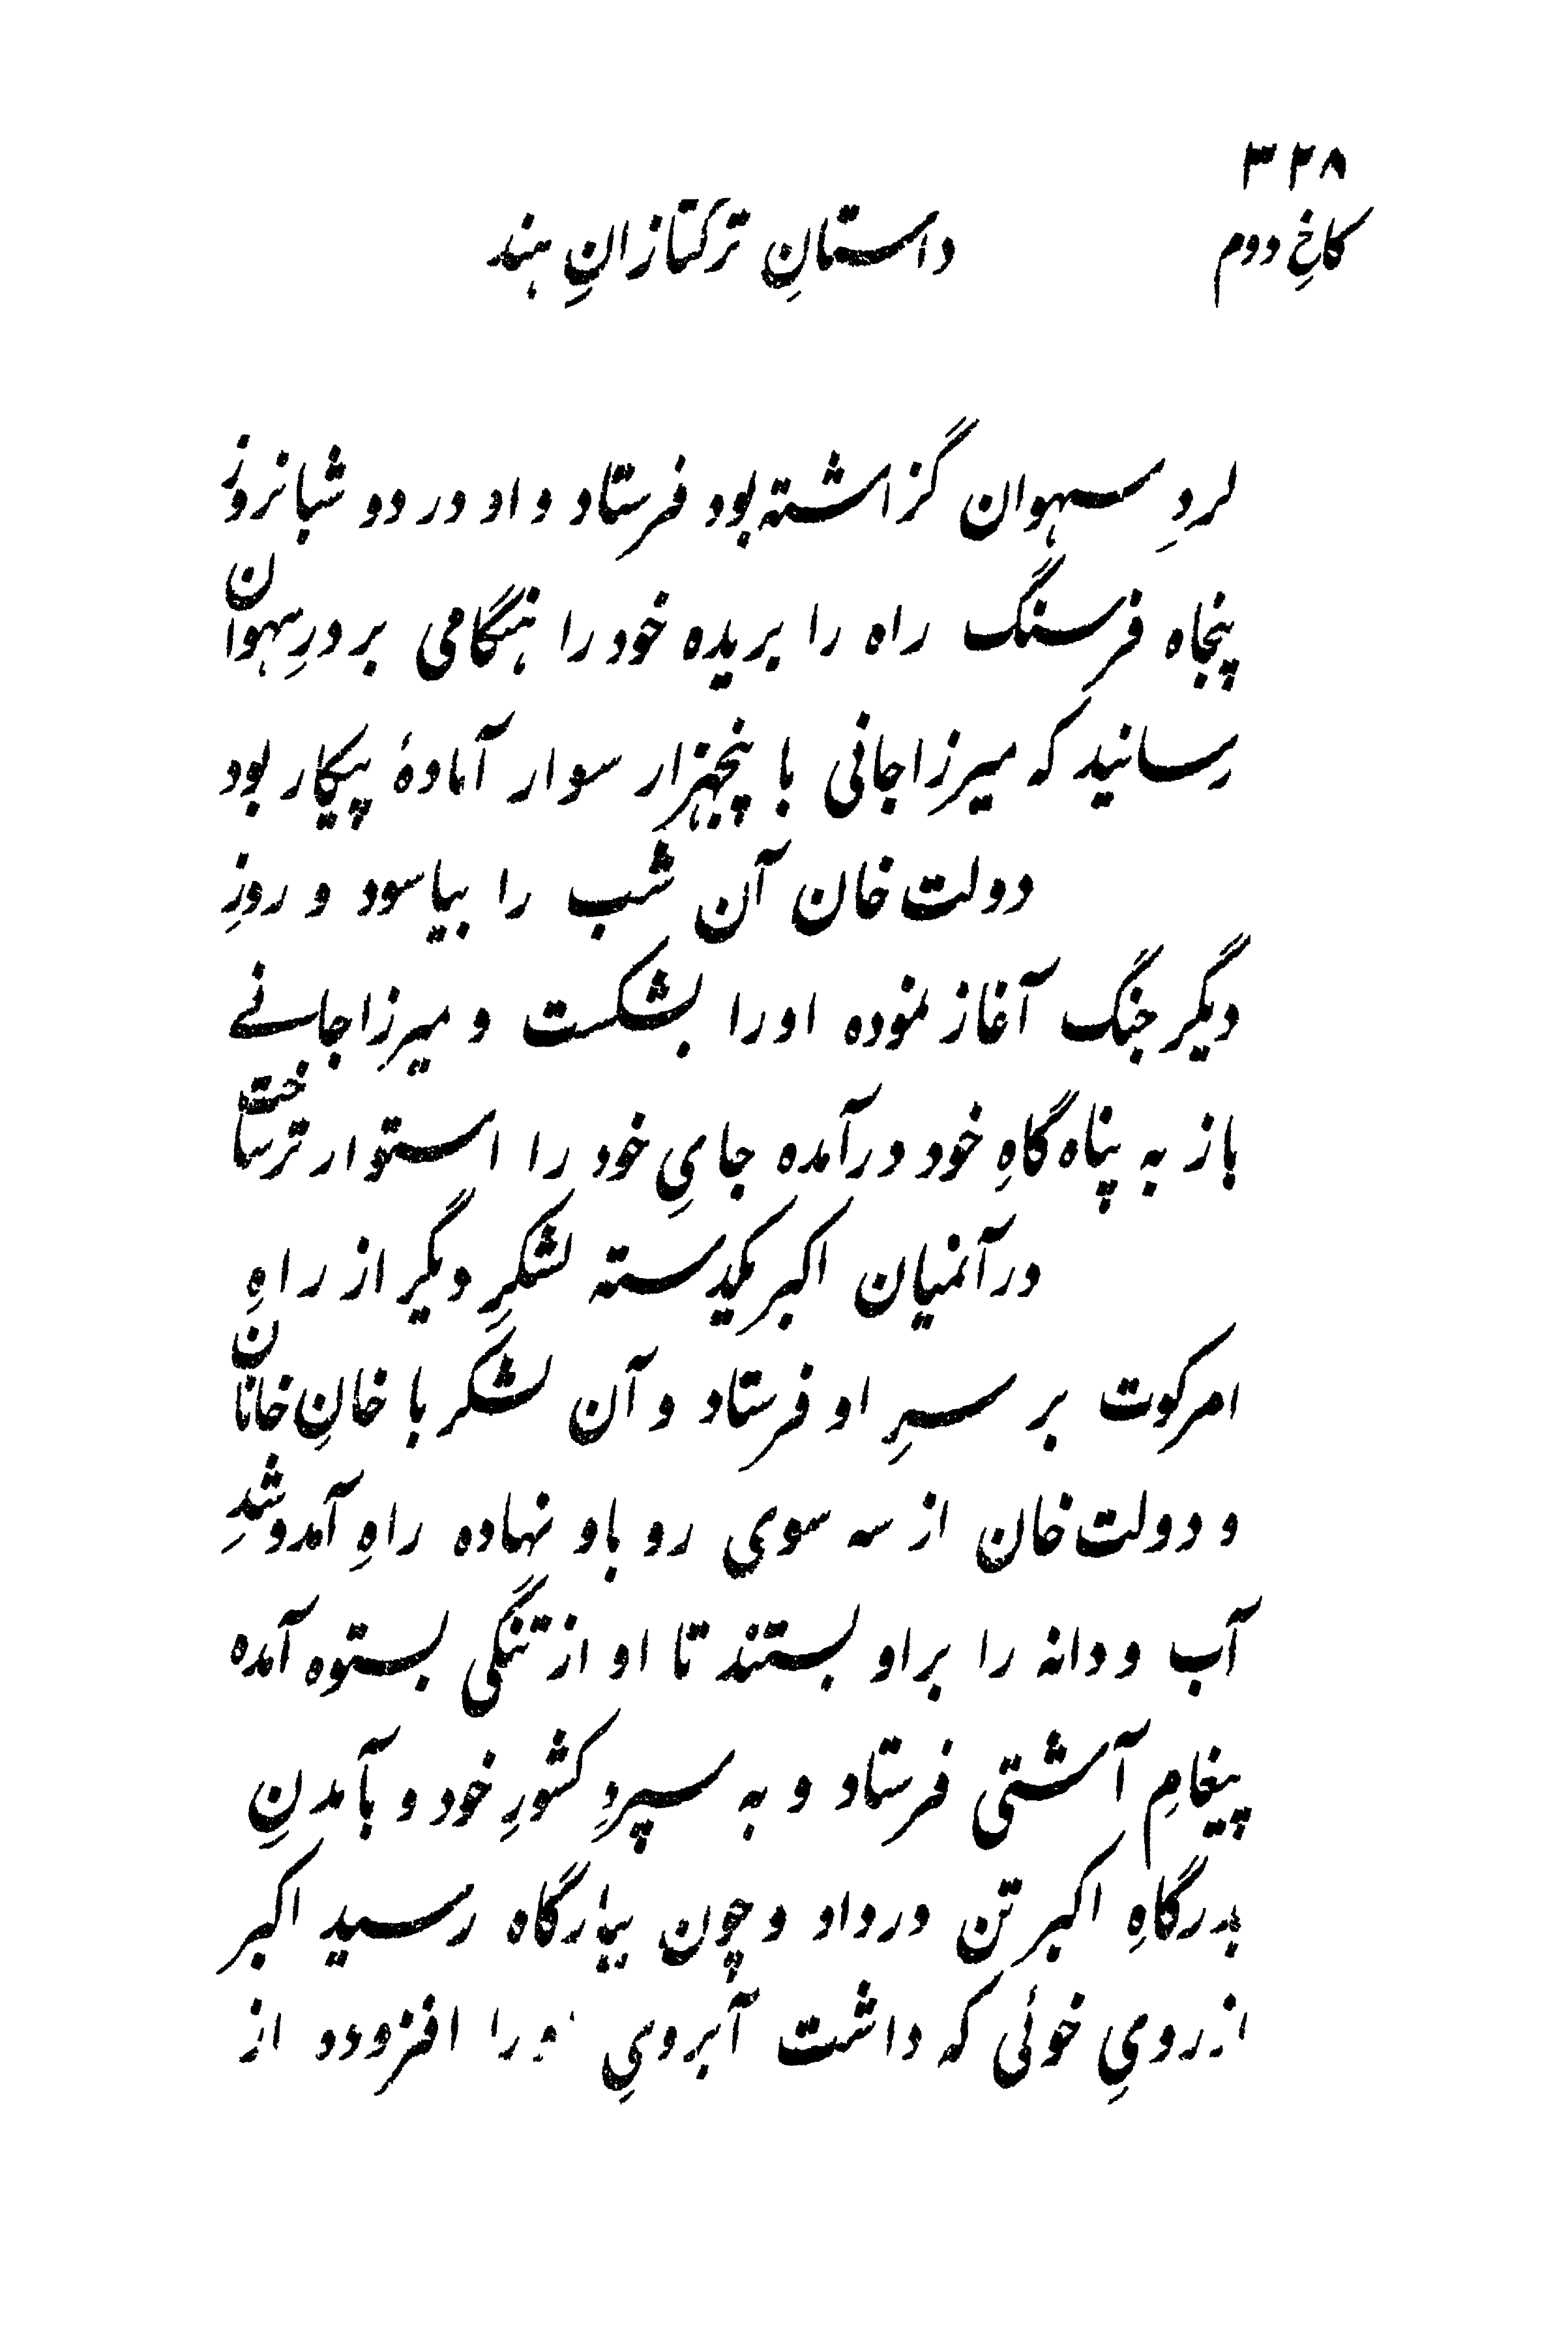 ۳۲۸
کاخِ دوم
داستانِ ترکتازانِ هند
لردِ سهوان گزاشته بود فرستاد و او در دو شبانروز
پنجاه فرسنگ راه را بریده خود را هنگامی بر درِ سهوان
رسانید که میرزا جانی با پنجهزار سوار آمادهٔ پیکار بود
دولت خان آن شب را بیاسود و روزِ
دیگر جنگ آغاز نموده اورا بشکست و میرزا جانے
باز به پناه گاهِ خود درآمده جایِ خود را استوار تر ساخت
در آنمیان اکبر یکدسته لشکرِ دیگر از راهِ
امرکوت بر سرِ او فرستاد و آن لشکر با خانِ خانان
و دولت خان از سه سوی رو باو نهاده راهِ آمد و شدِ
آب و دانه را براو بستند تا او از تنگی بستوه آمده
پیغامِ آشتی فرستاد و به سپردِ کشورِ خود و بآمدنِ
بدرگاهِ اکبر تن درداد و چون ببارگاه رسید اکبر
از رویِ خوئی که داشت آبرویِ را افزود و از